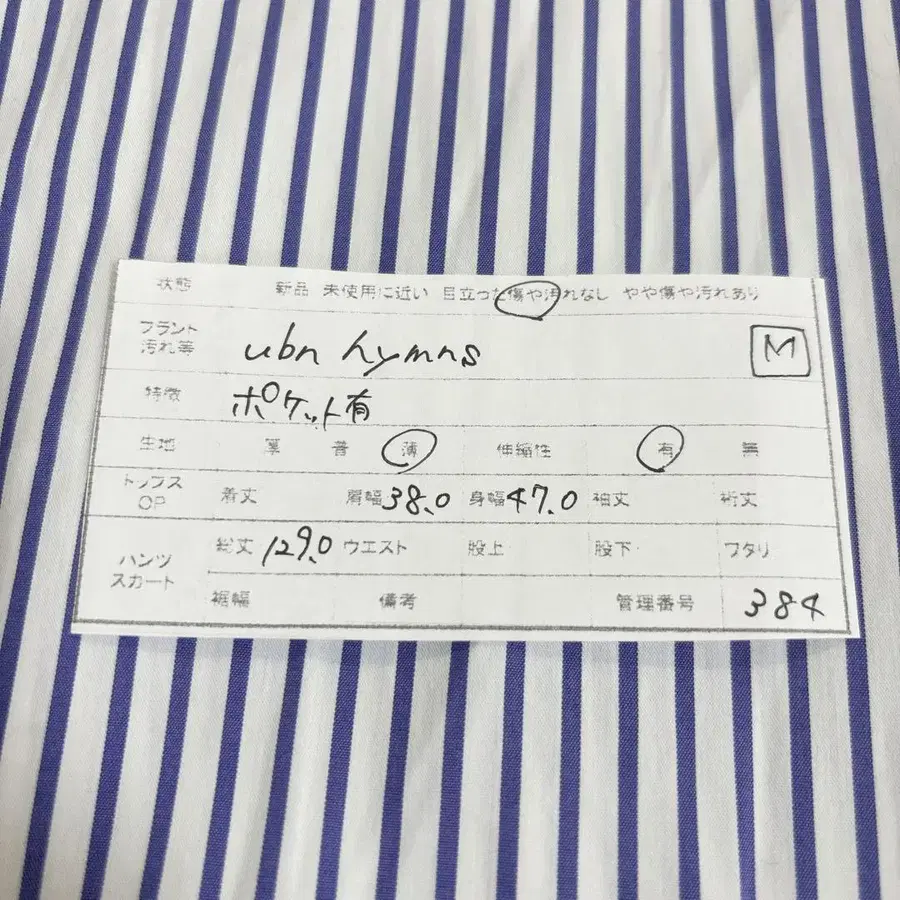 状態 新品 未使用に近い 目立った傷や汚れなし やや傷や汚れあり
ブランド 汚れ等 ubn hymns M
特徴 ポケット有
生地 厚 普 薄 伸縮性 有 無
トップス OP 着丈 肩幅 38.0 身幅 47.0 袖丈 裄丈
パンツ スカート 総丈 129.0 ウエスト 股上 股下 ワタリ
裾幅 備考 管理番号 384